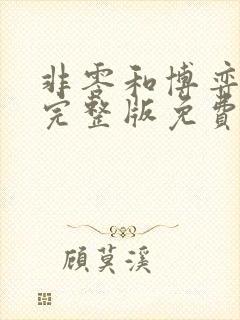 非零和博弈
完整版免費
顧莫溪